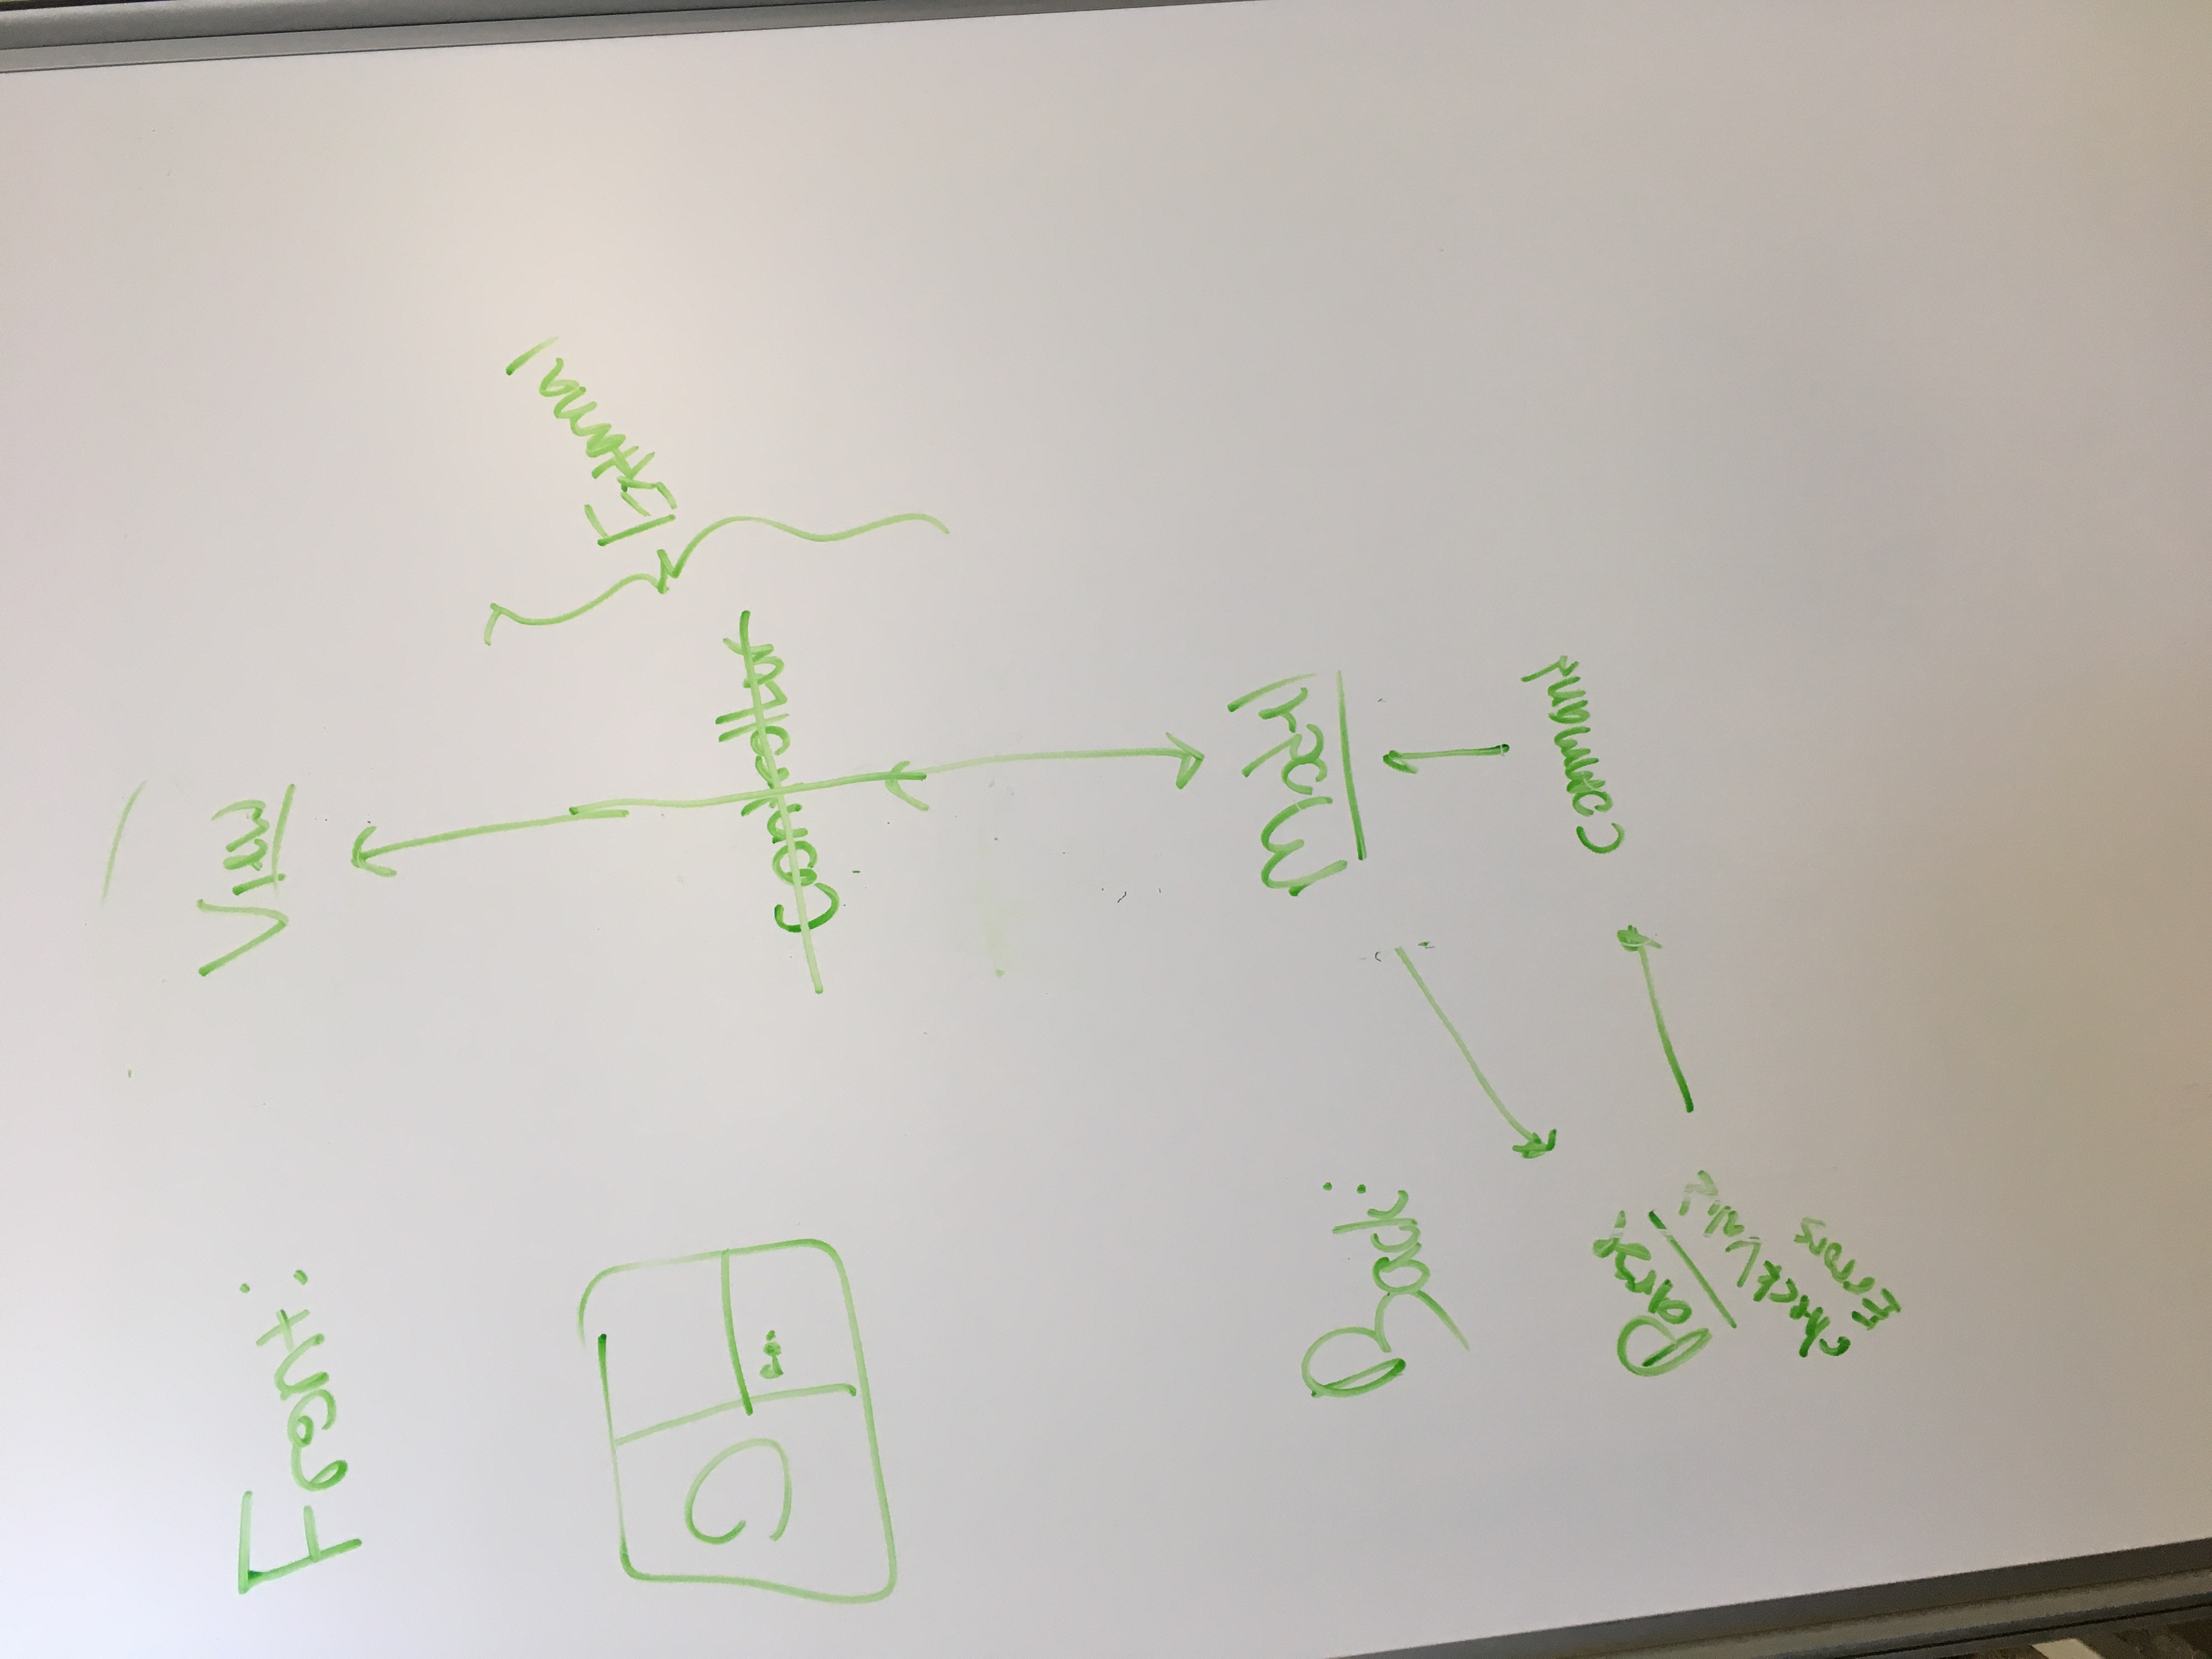 View
Front:
External
Controller
Model
Back:
command
Parse
check Valid
Errors